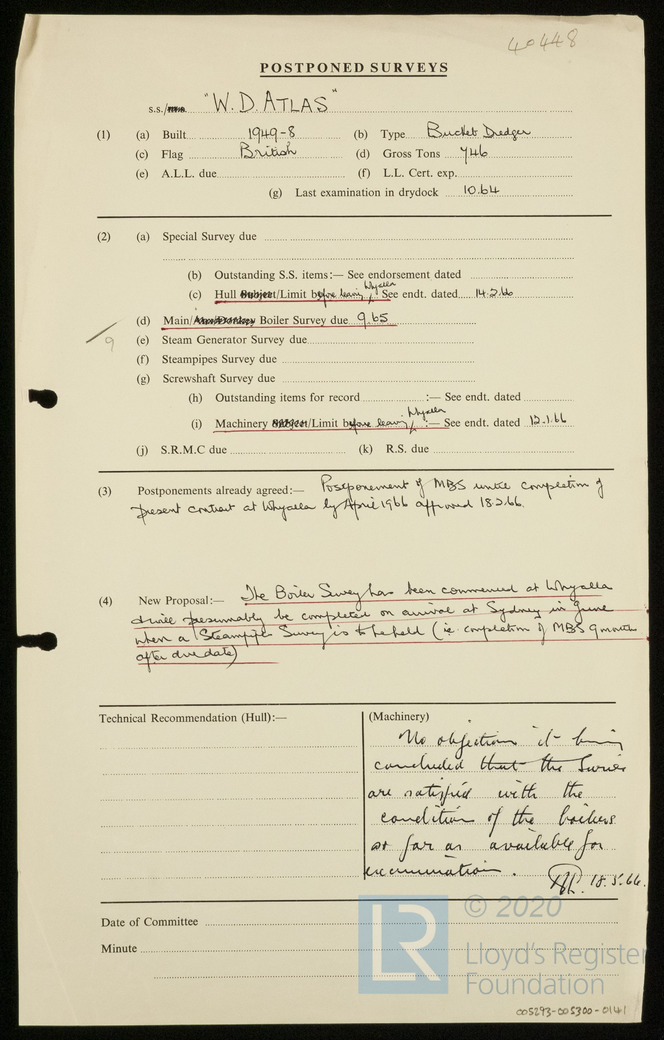 40448
POSTPONED SURVEYS
s.s./m.v. "W.D. ATLAS"
(1) (a) Built 1949-8 (b) Type Bucket Dredger
(c) Flag British (d) Gross Tons 746
(e) A.L.L. due (f) L.L. Cert. exp.
(g) Last examination in drydock 10.64
(2) (a) Special Survey due
(b) Outstanding S.S. items:— See endorsement dated
(c) Hull Subject/Limit before leaving Whyalla See endt. dated 14.2.66
(d) Main/ Boiler Survey due 9.65
9 (e) Steam Generator Survey due
(f) Steampipes Survey due
(g) Screwshaft Survey due
(h) Outstanding items for record :— See endt. dated
(i) Machinery Subject/Limit before leaving Whyalla :— See endt. dated 12.1.66
(j) S.R.M.C due (k) R.S. due
(3) Postponements already agreed:— Postponement of MBS until completion of
present contract at Whyalla by April 1966 approved 18.2.66.
(4) New Proposal:— The Boiler Survey has been commenced at Whyalla
& will presumably be completed on arrival at Sydney in June
when a Steampipe Survey is to be held (i.e. completion of MBS 9 months
after due date)
Technical Recommendation (Hull):— (Machinery)
No objection it being
concluded that the Surveyors
are satisfied with the
condition of the boilers
so far as available for
examination.
18.5.66.
Date of Committee
Minute
© 2020
LR
Lloyd's Register
Foundation
005293-005300-0141